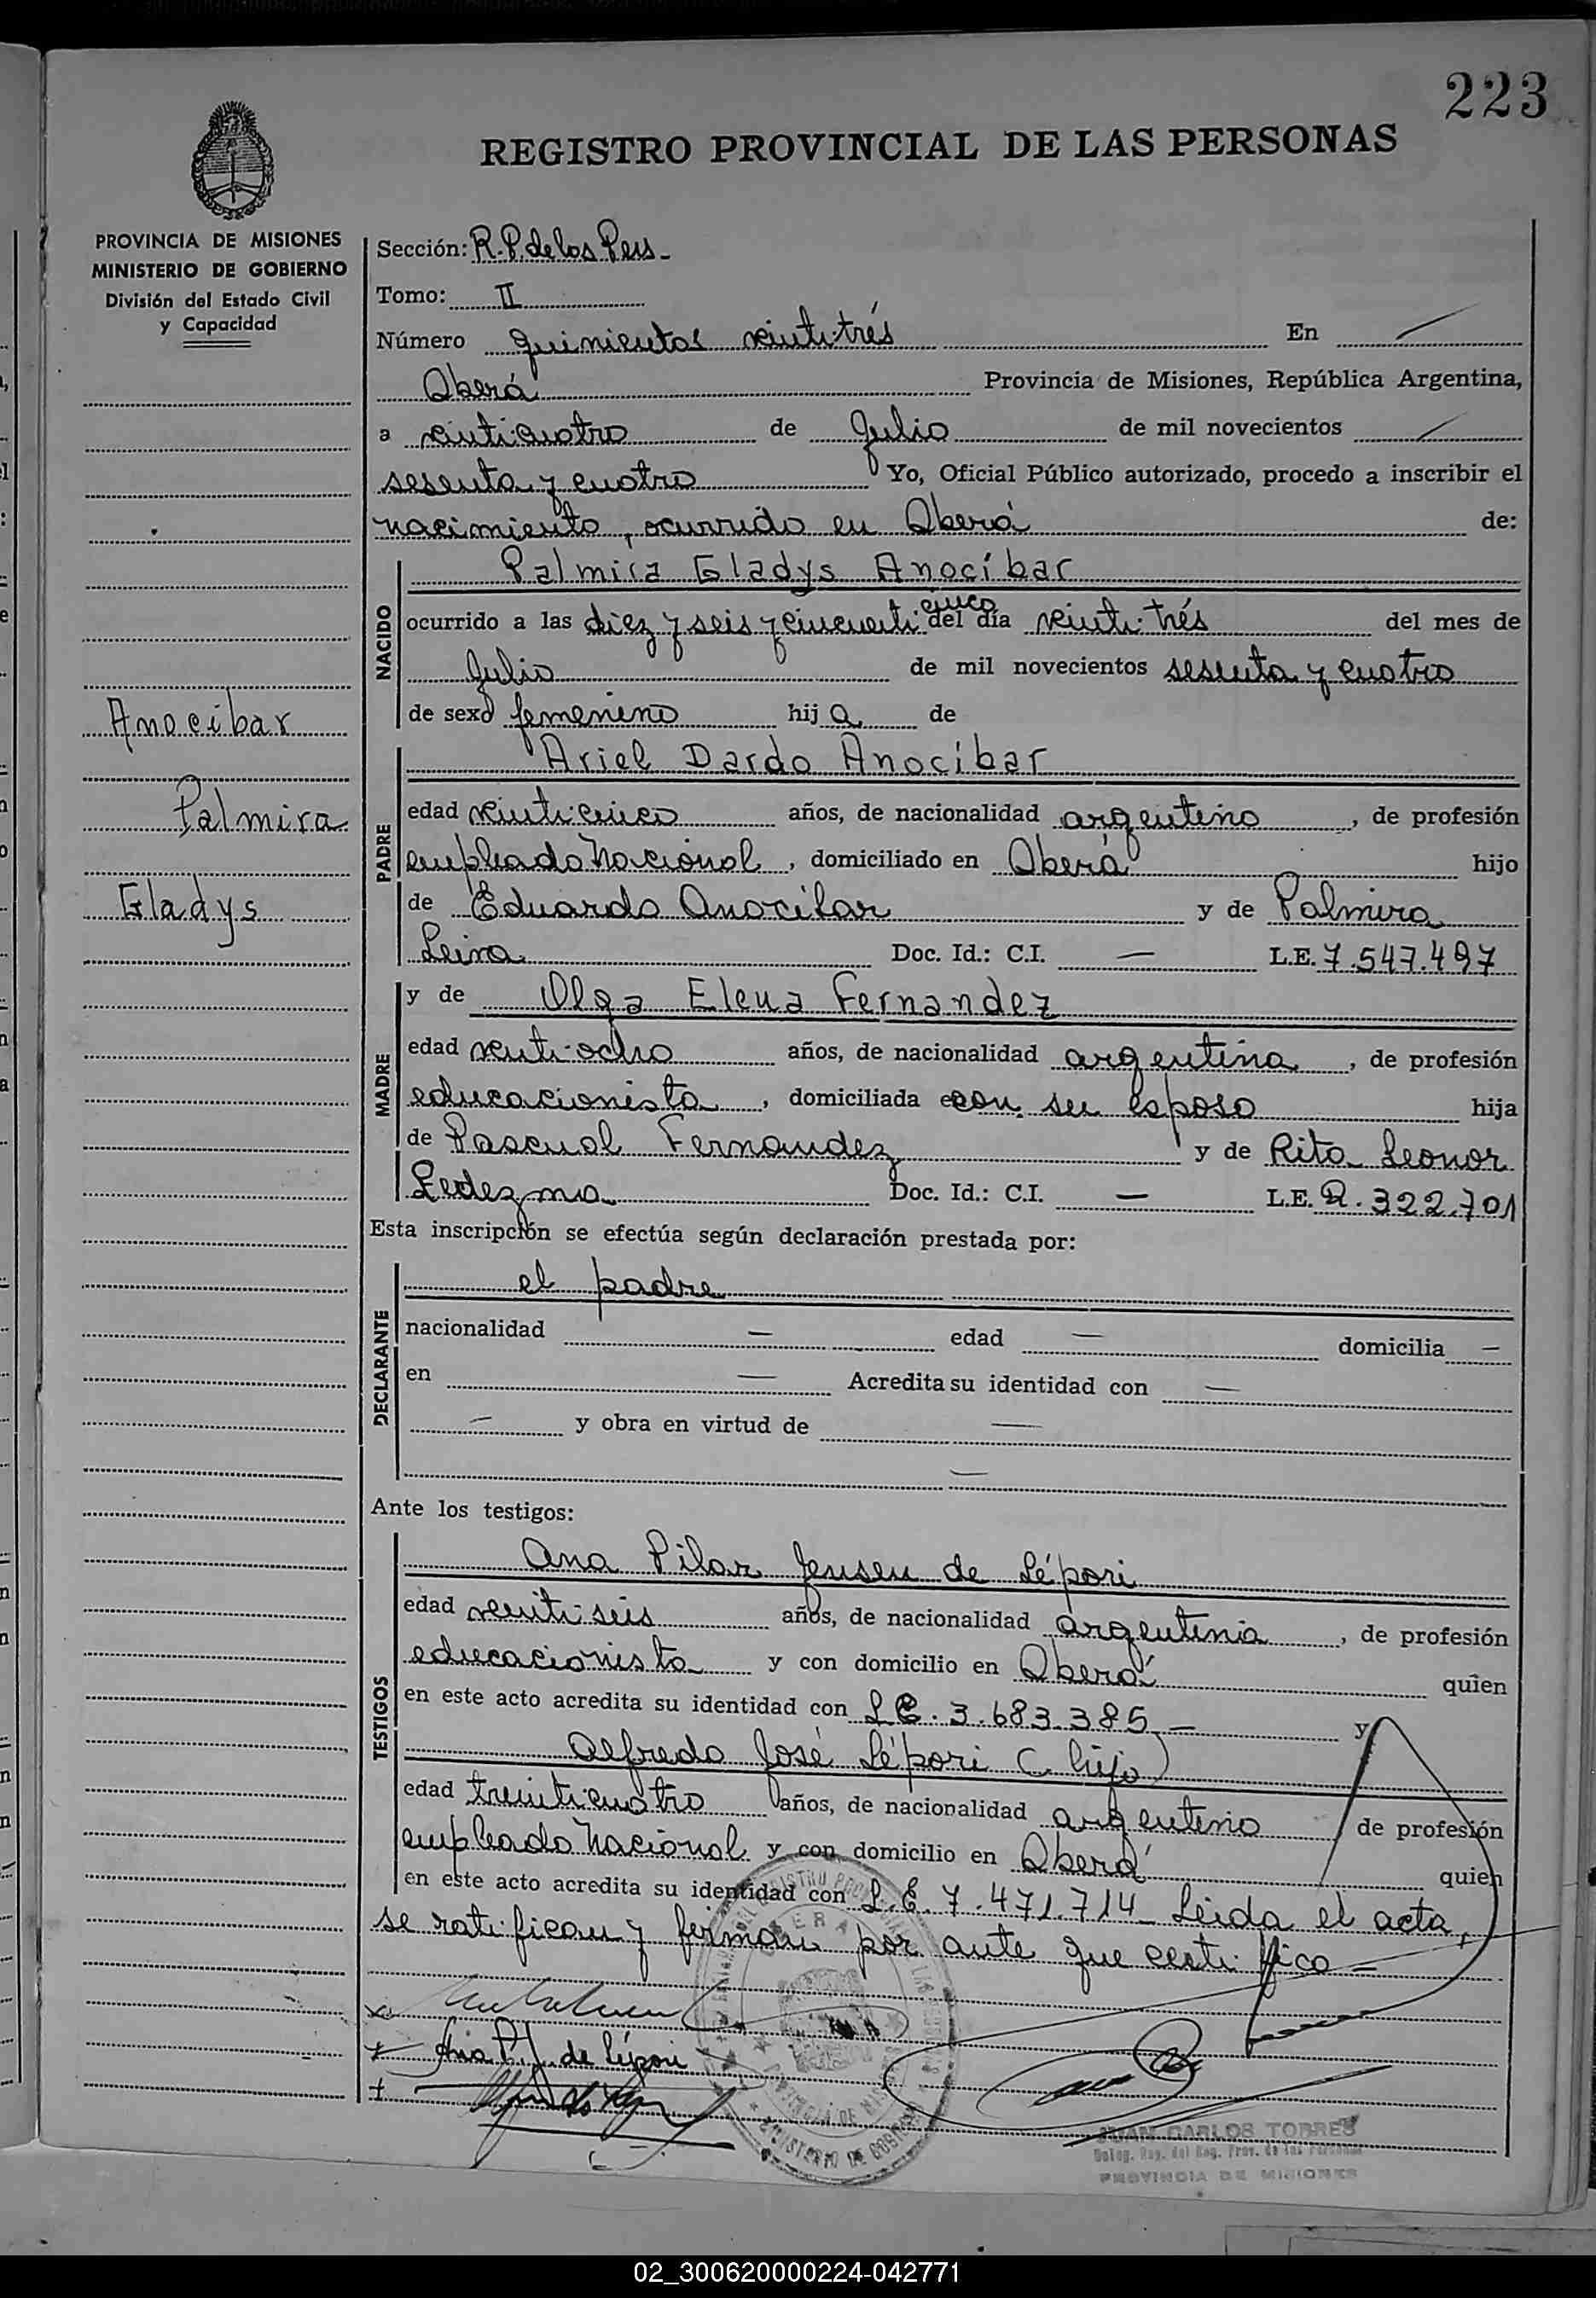 223
REGISTRO PROVINCIAL DE LAS PERSONAS
PROVINCIA DE MISIONES
MINISTERIO DE GOBIERNO
División del Estado Civil
y Capacidad
Anocibar
Palmira
Gladys
Sección: R.P. de las Pers.
Tomo: II
Número quinientos veintitrés En
Oberá Provincia de Misiones, República Argentina,
a veinticuatro de Julio de mil novecientos
sesenta y cuatro Yo, Oficial Público autorizado, procedo a inscribir el
nacimiento, ocurrido en Oberá de:
NACIDO
Palmira Gladys Anocibar
ocurrido a las diez y seis y cincuenti cinco del día veinti trés del mes de
Julio de mil novecientos sesenta y cuatro
de sexo femenino hij a de
PADRE
Ariel Dardo Anocibar
edad veinticinco años, de nacionalidad argentino, de profesión
empleado Nacional, domiciliado en Oberá hijo
de Eduardo Anocibar y de Palmira
Leira Doc. Id.: C.I. — L.E. 7.547.497
MADRE
y de Olga Elena Fernandez
edad veintiocho años, de nacionalidad argentina, de profesión
educacionista, domiciliada con su esposo hija
de Pascual Fernandez y de Rita Leonor
Ledezma Doc. Id.: C.I. — L.E. 2.322.701
Esta inscripción se efectúa según declaración prestada por:
DECLARANTE
el padre
nacionalidad — edad — domicilia —
en — Acredita su identidad con —
— y obra en virtud de —
—
Ante los testigos:
TESTIGOS
Ana Pilar Jensen de Lépori
edad veintiseis años, de nacionalidad argentina, de profesión
educacionista y con domicilio en Oberá quien
en este acto acredita su identidad con L.C. 3.683.385 — y
Alfredo José Lépori (hijo)
edad treinticuatro años, de nacionalidad argentino de profesión
empleado Nacional y con domicilio en Oberá quien
en este acto acredita su identidad con L.E. 7.471.714 — Leida el acta,
se ratifican y firman por ante que certifico —
Ana P. J. de Lépori
JUAN CARLOS TORRES
Deleg. Reg. del Reg. Prov. de las Personas
PROVINCIA DE MISIONES
02_300620000224-042771